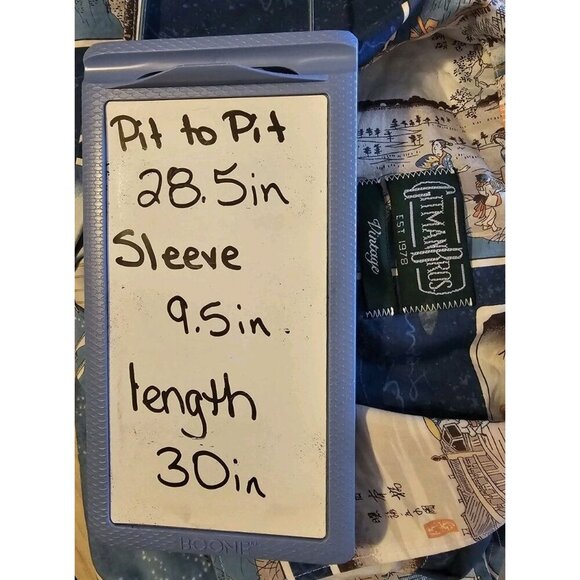 Pit to Pit
28.5in
Sleeve
9.5in
length
30in
GITMAN BROS
EST 1978
Vintage